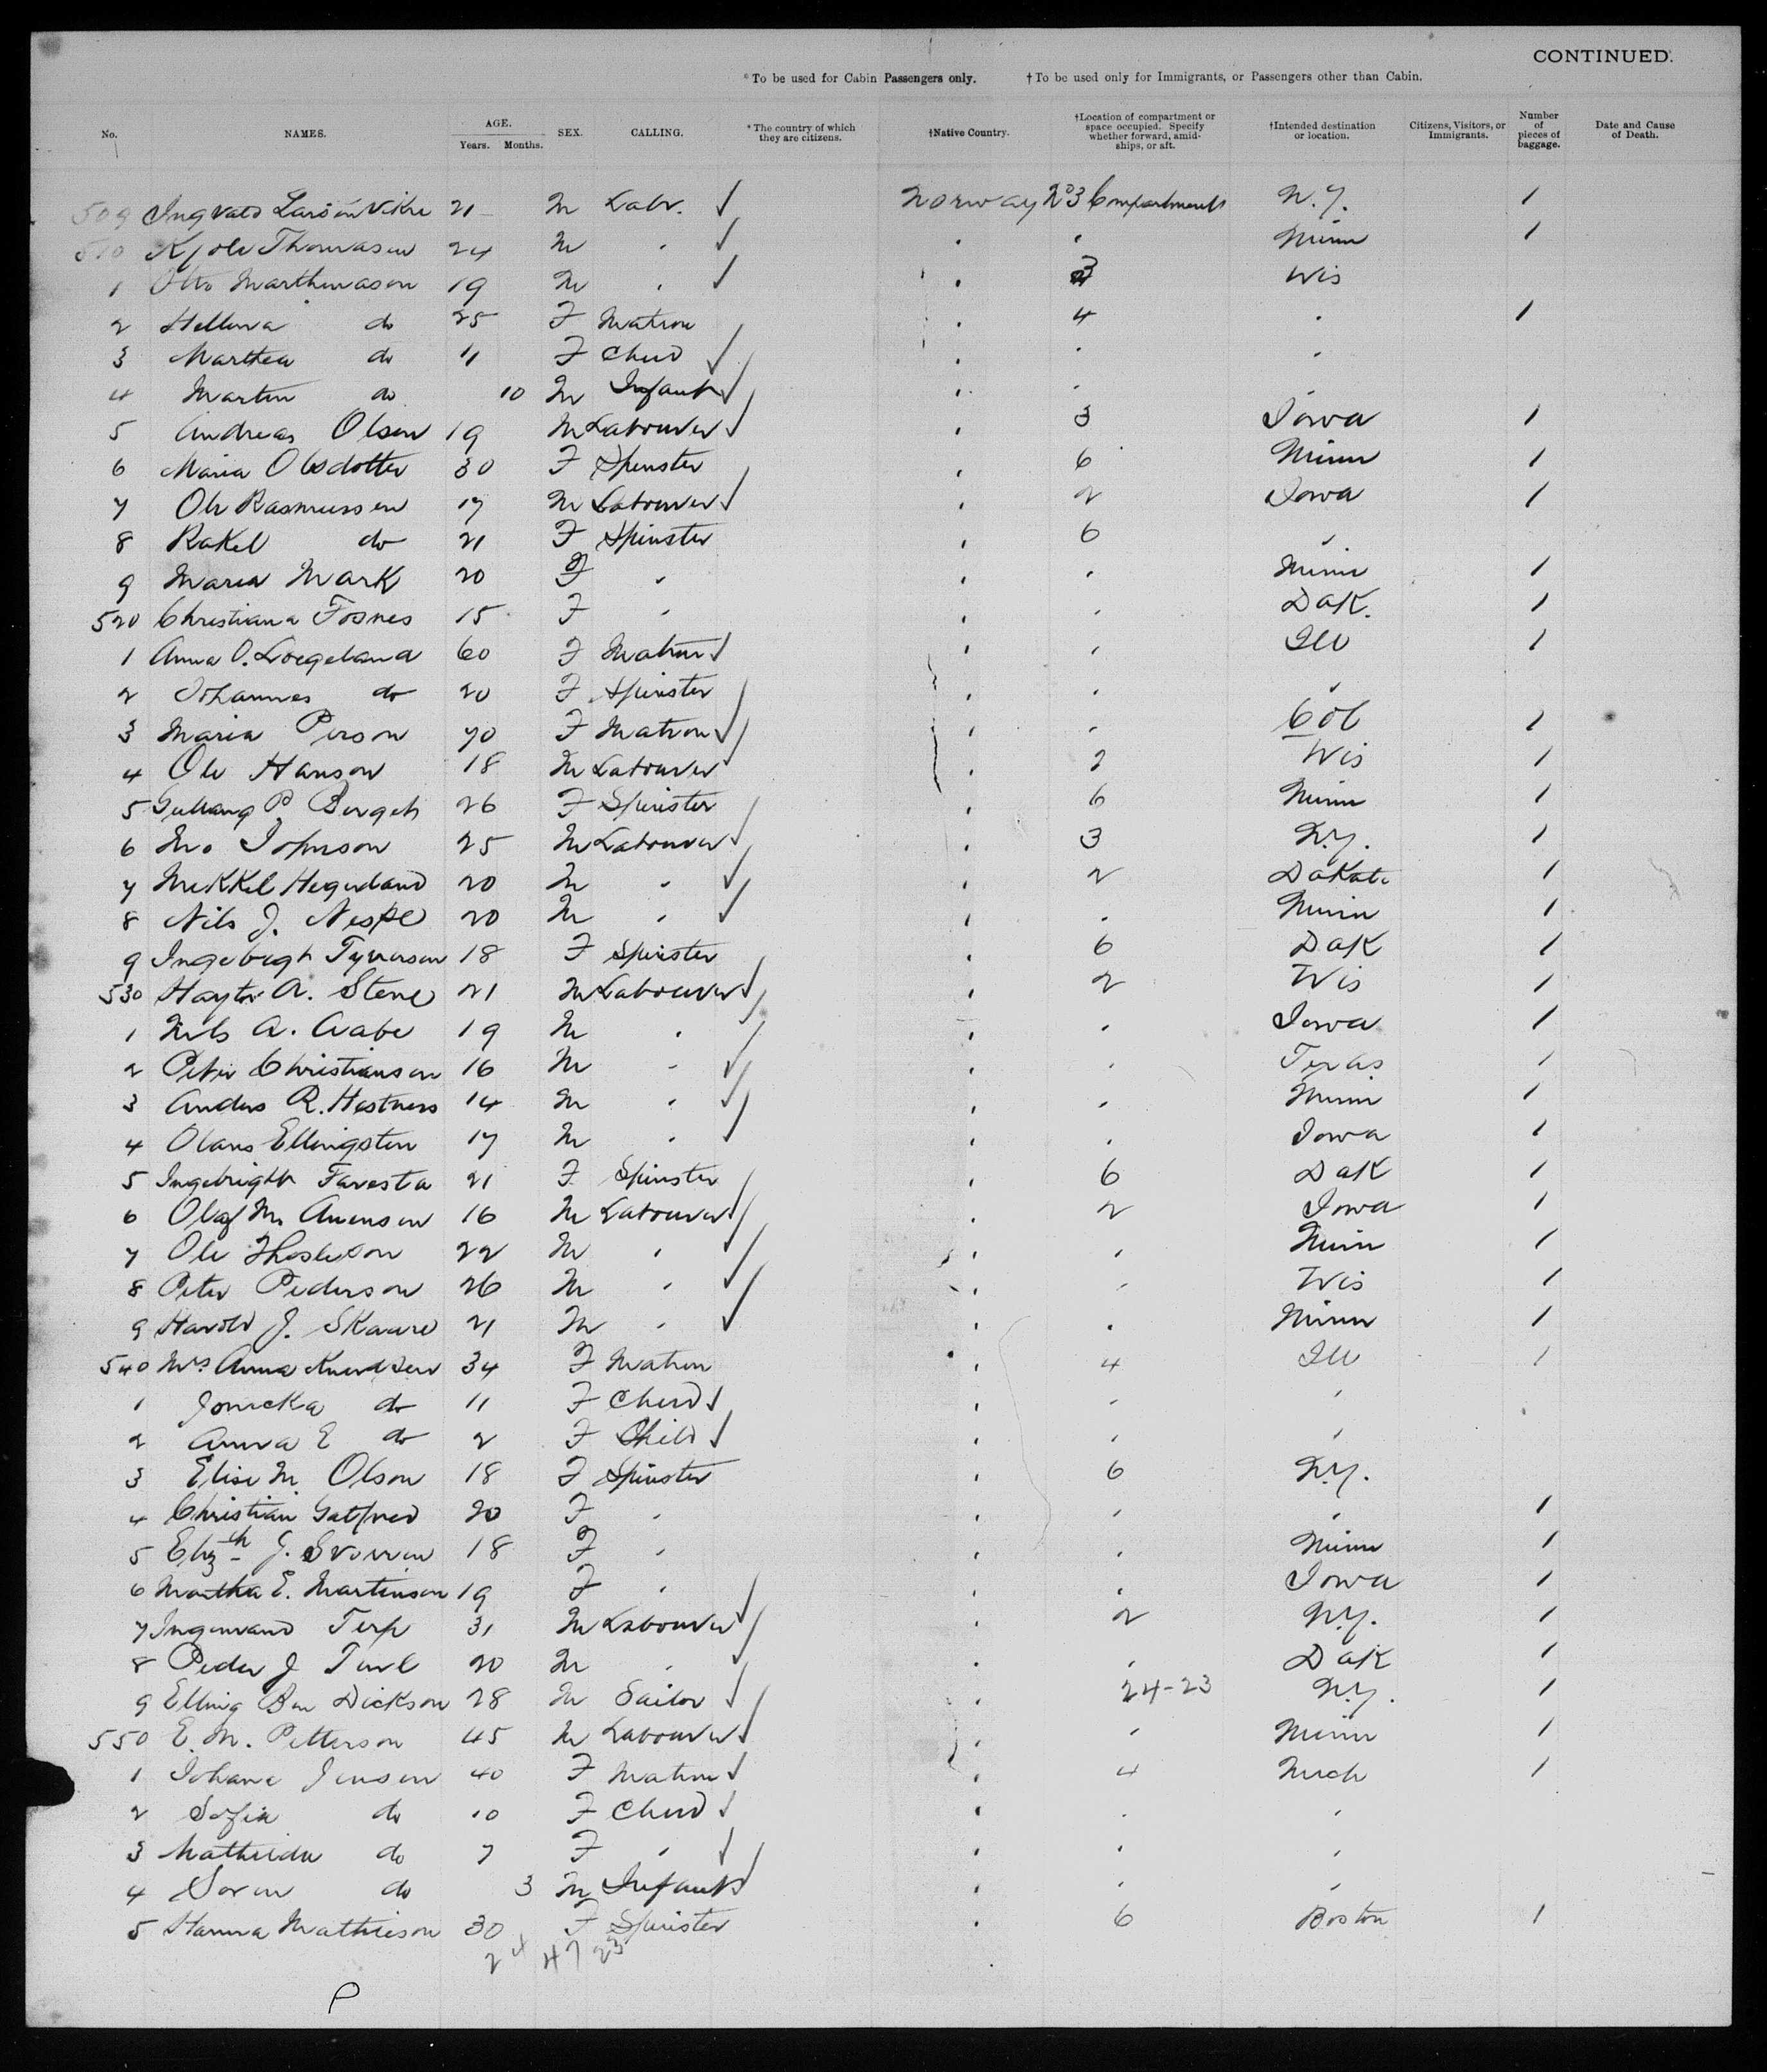 CONTINUED.
*To be used for Cabin Passengers only. †To be used only for Immigrants, or Passengers other than Cabin.
No. NAMES. AGE. Years. Months. SEX. CALLING. *The country of which they are citizens. †Native Country. †Location of compartment or space occupied. Specify whether forward, amidships, or aft. †Intended destination or location. Citizens, Visitors, or Immigrants. Number of pieces of baggage. Date and Cause of Death.
509 Larson Vikre 21 M Labr. ✓ Norway 2º3 Compartments N.Y. 1
510 Kjole Thomason 24 M " ✓ " " Minn 1
1 Otto Marthinason 19 M " ✓ " 3 Wis
2 Hellena do 25 F Matron " 4 " 1
3 Marthea do 11 F Child ✓ " " "
4 Martin do 10 M Infant ✓ " " "
5 Andreas Olsen 19 M Labourer ✓ " 3 Iowa 1
6 Maria Olsdotter 30 F Spinster " 6 Minn 1
7 Ole Rasmussen 17 M Labourer ✓ " 2 Iowa 1
8 Rakel do 21 F Spinster " 6 "
9 Maria Mark 20 F " " " Minn 1
520 Christiana Fosnes 15 F " " " Dak. 1
1 Anna O. Loegeland 60 F Matron ✓ " " Ill 1
2 Johannes do 20 F Spinster " " "
3 Maria Person 70 F Matron ✓ " " Col 1
4 Ole Hanson 18 M Labourer ✓ " 2 Wis 1
5 P. 26 F Spinster " 6 Minn 1
6 Johnson 25 M Labourer ✓ " 3 N.Y. 1
7 Mekkel Hegeland 20 M " ✓ " 2 Dakota 1
8 Nils J. 20 M " ✓ " " Minn 1
9 18 F Spinster " 6 Dak 1
530 A. Stene 21 M Labourer ✓ " 2 Wis 1
1 Nils A. Aabe 19 M " ✓ " " Iowa 1
2 Peter Christianson 16 M " ✓ " " Texas 1
3 Anders R. Hestness 14 M " ✓ " " Minn 1
4 Olaus Ellingsten 17 M " ✓ " " Iowa 1
5 Ingebright Favesta 21 F Spinster " 6 Dak 1
6 Olaf M. Anenson 16 M Labourer ✓ " 2 Iowa 1
7 Ole 22 M " ✓ " " Minn 1
8 Peter Pederson 26 M " ✓ " " Wis 1
9 Harold J. Skaare 21 M " ✓ " " Minn 1
540 Mrs Anna Knudsen 34 F Matron " 4 Ill 1
1 do 11 F Child ✓ " " "
2 Anna E do 2 F Child ✓ " " "
3 Elise M. Olson 18 F Spinster " 6 N.Y.
4 Christian 20 F " " " " 1
5 Elizth J. 18 F " " " Minn 1
6 Martha E. Martinson 19 F " " " Iowa 1
7 Terp 31 M Labourer ✓ " 2 N.Y. 1
8 Peder J 20 M " ✓ " " Dak 1
9 Elling Dickson 28 M Sailor ✓ " 24-23 N.Y. 1
550 E. M. Petterson 45 M Labourer ✓ " " Minn 1
1 Johana Jensen 40 F Matron ✓ " 4 Mich 1
2 Sofia do 10 F Child ✓ " " "
3 Mathilda do 7 F " ✓ " " "
4 Soren do 3 M Infant ✓ " " "
5 Hanna Mathieson 30 F Spinster " 6 Boston 1
24 47 23
P